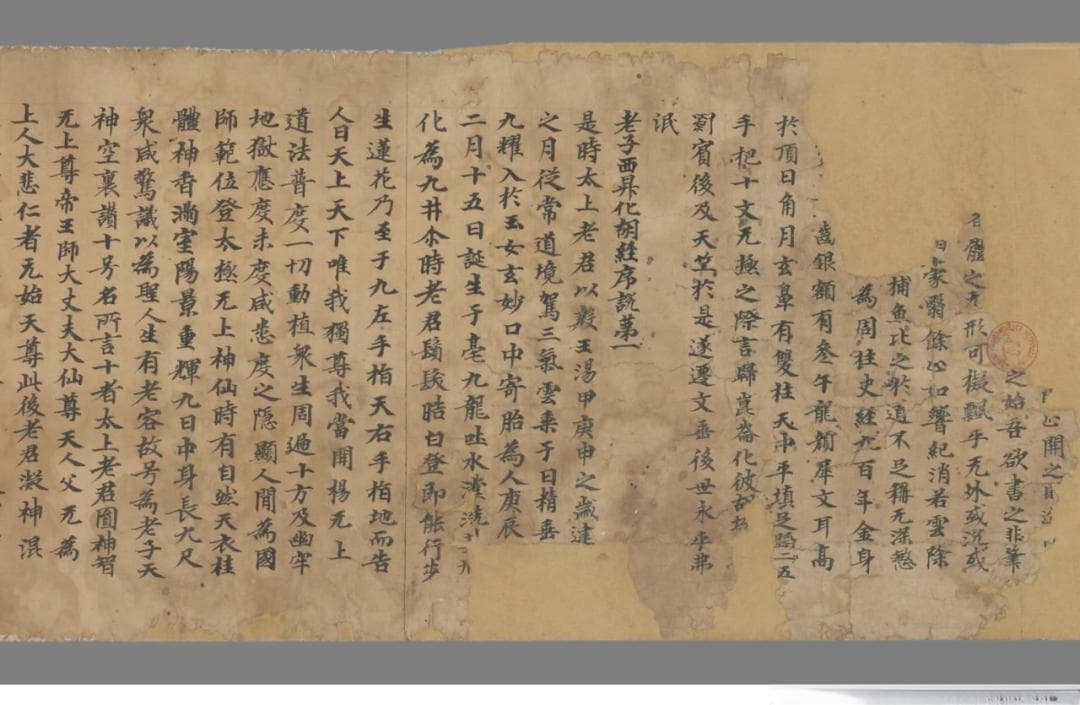 心開之自
之始吾欲書之非筆
體之无形可擬飄乎无外或沉或
蒙爵餘心如響紀消若雲除
捕魚比之於道不足稱无深愁
為周柱史經九百年金身
齒銀額有叁午龍顏犀文耳高
於頂日角月玄鼻有雙柱天中平填足蹈二五
手把十文无極之際言歸崑崙化彼
罽賓後及天竺於是遂遷文垂後世永乎弗
泯
老子西昇化胡經序說第一
是時太上老君以殷王湯甲庚申之歲建
之月從常道境駕三氣雲乘于日精垂
九耀入於玉女玄妙口中寄胎為人庚辰
二月十五日誕生于亳九龍吐水灌洗
化為九井尒時老君鬚髮皓白登即能行步
生蓮花乃至于九左手指天右手指地而告
人曰天上天下唯我獨尊我當開楊无上
道法普度一切動植衆生周遍十方及幽牢
地獄應度未度咸悉度之隱顯人間為國
師範位登太極无上神仙時有自然天衣挂
體神香滿室陽景重輝九日中身長九尺
衆咸驚議以為聖人生有老容故号為老子天
神空裏讚十号名所言十者太上老君圓神智
无上尊帝王師大丈夫大仙尊天人父无為
上人大悲仁者无始天尊此後老君凝神混